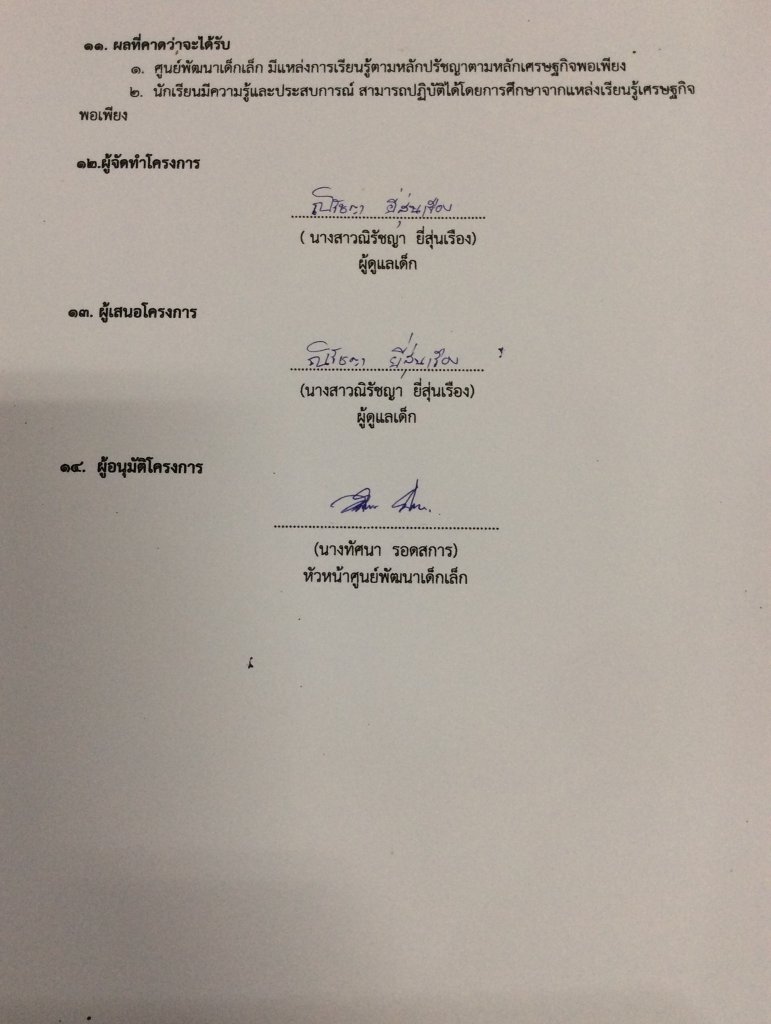 ๑๑. ผลที่คาดว่าจะได้รับ
๑. ศูนย์พัฒนาเด็กเล็ก มีแหล่งการเรียนรู้ตามหลักปรัชญาตามหลักเศรษฐกิจพอเพียง
๒. นักเรียนมีความรู้และประสบการณ์ สามารถปฏิบัติได้โดยการศึกษาจากแหล่งเรียนรู้เศรษฐกิจ
พอเพียง
๑๒.ผู้จัดทำโครงการ
ณิรัชญา ยี่สุ่นเรือง
( นางสาวณิรัชญา ยี่สุ่นเรือง)
ผู้ดูแลเด็ก
๑๓. ผู้เสนอโครงการ
ณิรัชญา ยี่สุ่นเรือง
(นางสาวณิรัชญา ยี่สุ่นเรือง)
ผู้ดูแลเด็ก
๑๔. ผู้อนุมัติโครงการ
(นางทัศนา รอดสการ)
หัวหน้าศูนย์พัฒนาเด็กเล็ก